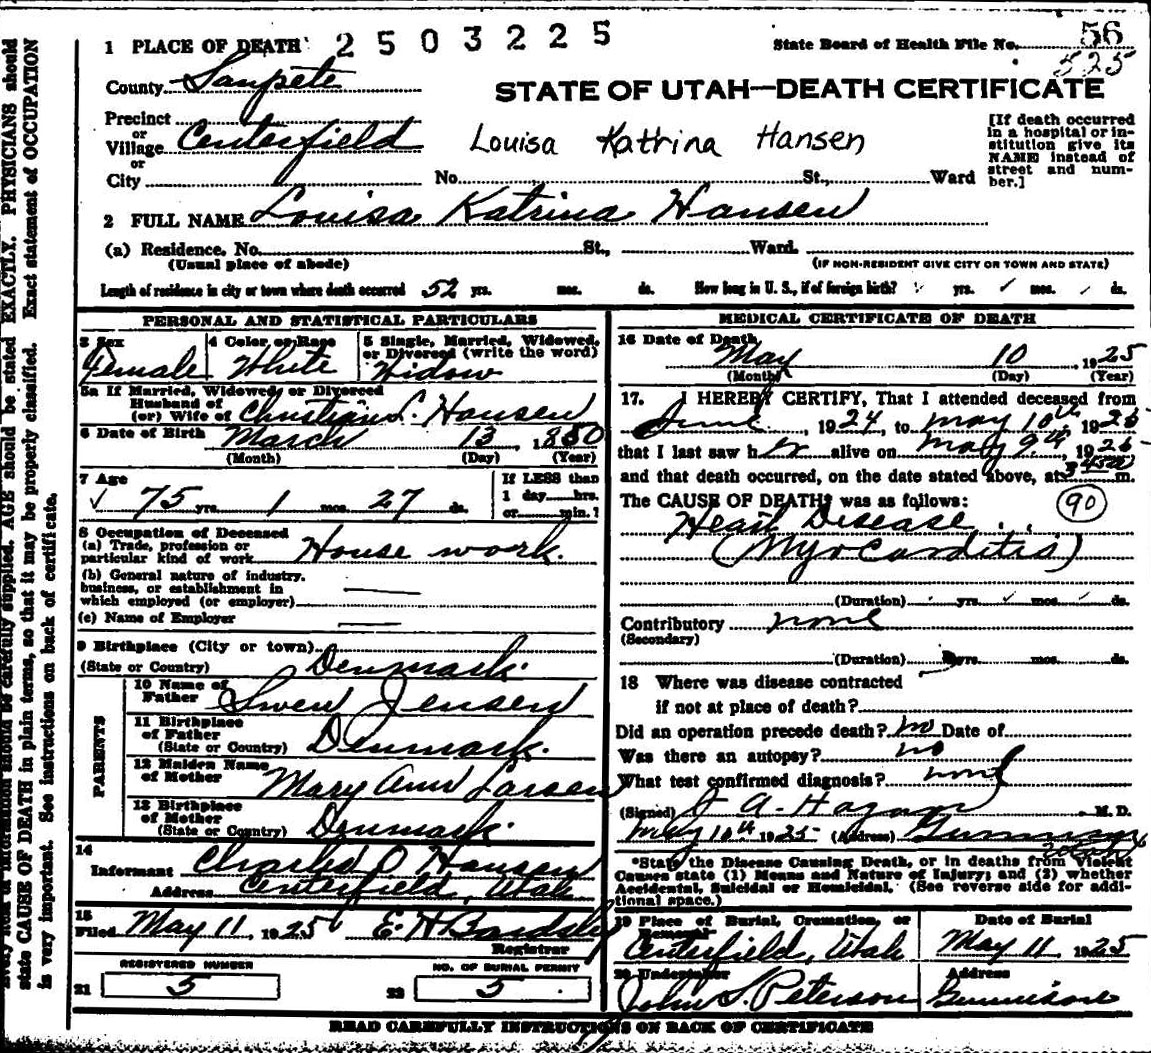 1 PLACE OF DEATH 2503225 State Board of Health File No. 56
525
County Sanpete
STATE OF UTAH—DEATH CERTIFICATE
Precinct
or
Village Centerfield
or
City No. St., Ward
Louisa Katrina Hansen
[If death occurred
in a hospital or in-
stitution give its
NAME instead of
street and num-
ber.]
2 FULL NAME Louisa Katrina Hansen
(a) Residence. No. St., Ward.
(Usual place of abode) (IF NON-RESIDENT GIVE CITY OR TOWN AND STATE)
Length of residence in city or town where death occurred 52 yrs. mos. ds. How long in U. S., if of foreign birth? yrs. mos. ds.
PERSONAL AND STATISTICAL PARTICULARS
3 Sex
Female
4 Color or Race
White
5 Single, Married, Widowed,
or Divorced (write the word)
Widow
5a If Married, Widowed or Divorced
Husband of
(or) Wife of Christian L. Hansen
6 Date of Birth March 13, 1850
(Month) (Day) (Year)
7 Age
75 yrs. 1 mos. 27 ds.
If LESS than
1 day hrs.
or min.?
8 Occupation of Deceased
(a) Trade, profession or
particular kind of work House work.
(b) General nature of industry,
business, or establishment in
which employed (or employer)
(c) Name of Employer
9 Birthplace (City or town)
(State or Country) Denmark.
PARENTS
10 Name of
Father Swen Jensen
11 Birthplace
of Father
(State or Country) Denmark.
12 Maiden Name
of Mother Mary Ann Larsen
13 Birthplace
of Mother
(State or Country) Denmark.
14
Informant Charles O Hansen
Address Centerfield, Utah
15
Filed May 11, 1925 E. H Bardsley
Registrar
REGISTERED NUMBER NO. OF BURIAL PERMIT
21 5 22 5
MEDICAL CERTIFICATE OF DEATH
16 Date of Death
May 10, 1925
(Month) (Day) (Year)
17. I HEREBY CERTIFY, That I attended deceased from
June, 1924, to May 10th, 1925
that I last saw her alive on May 9th, 1925
and that death occurred, on the date stated above, at 3 45 a m.
The CAUSE OF DEATH* was as follows: 90
Heart Disease
(Myocarditis)
(Duration) yrs. mos. ds.
Contributory none
(Secondary)
(Duration) yrs. mos. ds.
18 Where was disease contracted
if not at place of death?
Did an operation precede death? no Date of
Was there an autopsy? no
What test confirmed diagnosis? none
(Signed) J A. Hagan M. D.
May 10th 1925 (Address) Gunnison
Utah
*State the Disease Causing Death, or in deaths from Violent
Causes state (1) Means and Nature of Injury; and (2) whether
Accidental, Suicidal or Homicidal. (See reverse side for addi-
tional space.)
19 Place of Burial, Cremation, or
Removal
Centerfield, Utah
Date of Burial
May 11 1925
20 Undertaker
John S. Peterson
Address
Gunnison
READ CAREFULLY INSTRUCTIONS ON BACK OF CERTIFICATE
should be carefully supplied. AGE should be stated EXACTLY. PHYSICIANS should
state CAUSE OF DEATH in plain terms, so that it may be properly classified. Exact statement of OCCUPATION
is very important. See instructions on back of certificate.